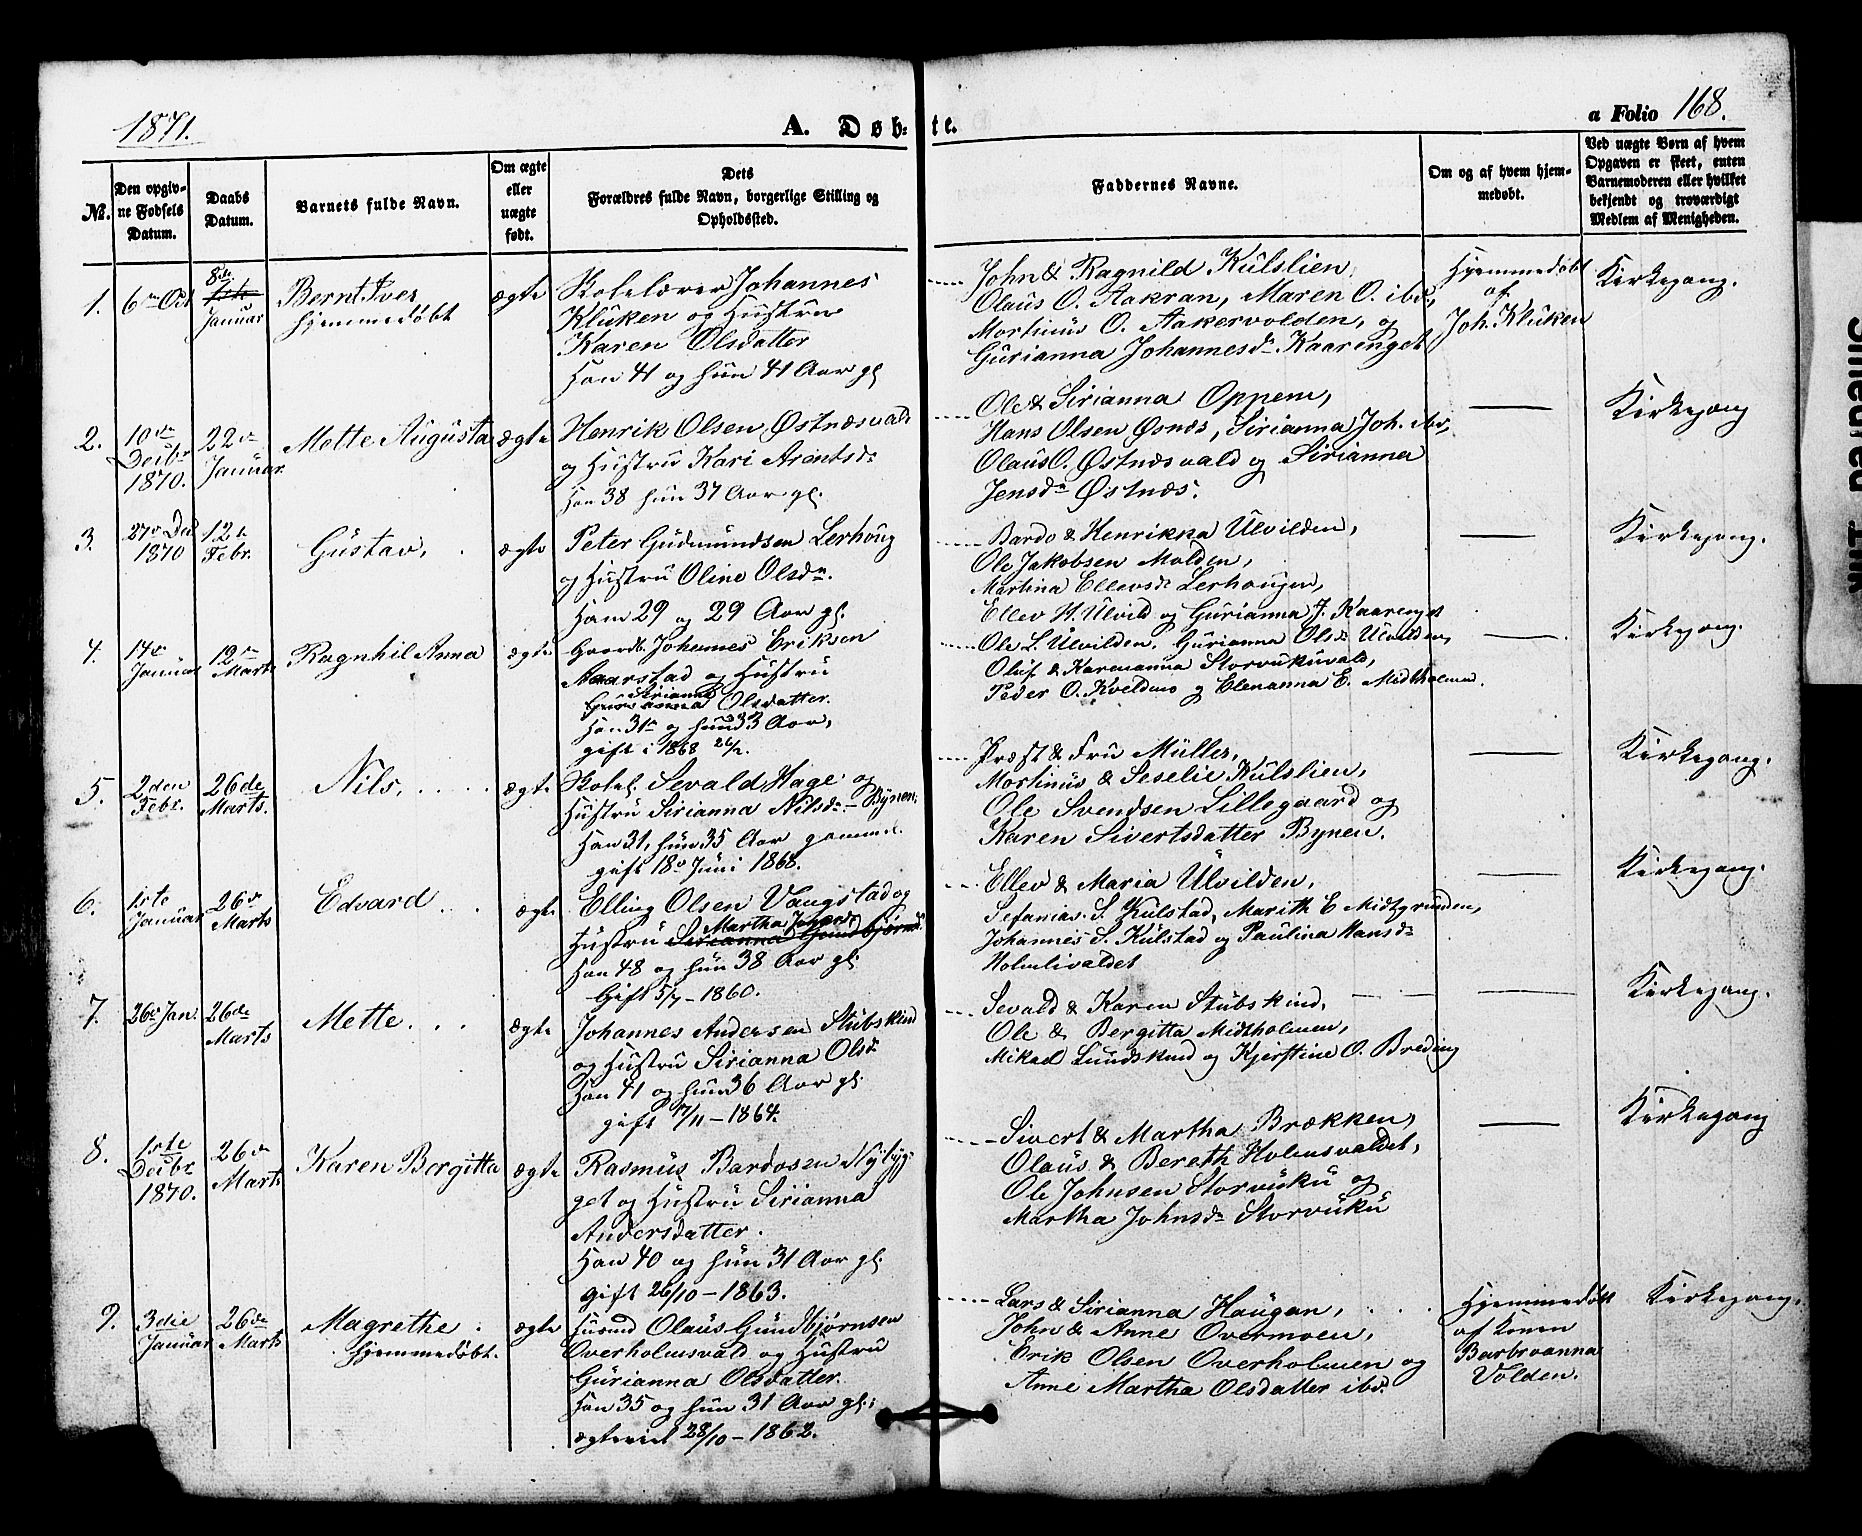 1871.
A. Døb-
te.
a Folio 168.
No.
Den opgiv-
ne Fødsels
Datum.
Daabs
Datum.
Barnets fulde Navn.
Om ægte
eller
uægte
født.
Dets
Forældres fulde Navn, borgerlige Stilling og
Opholdssted.
Faddernes Navne.
Om og af hvem hjem-
medøbt.
Ved uægte Børn af hvem
Opgaven er skeet, enten
Barnemoderen eller hvilket
bekjendt og troværdigt
Medlem af Menigheden.
1.
6te Oct
8de
Januar
Bernt Iver
hjemmedøbt
ægte
Skolelærer Johannes
Kluken og Hustru
Karen Olsdatter
Han 41 og hun 41 Aar gl
John & Ragnild Kulslien
Olaus O. Aakran, Maren O. ibd,
Mortinus O. Aakervolden, og
Gurianna Johannesdr Kaarenget
Hjemmedøbt
af
Joh. Kluken
Kirkegang.
2.
10de
Decbr
1870.
22de
Januar
Mette Augusta
ægte
Henrik Olsen Østnæsvald
og Hustru Kari Arentsdr
Han 38 hun 37 Aar gl.
Ole & Sirianna Oppem,
Hans Olsen Øsnæs, Sirianna Joh. ibd,
Olaus O. Østnæsvald og Sirianna
Jensdr Østnæs.
Kirkegang
3.
27de Dec
1870
12te
Febr.
Gustav,
ægte
Peter Gudmundsen Lerhoug
og Hustru Oline Olsdr.
Han 29 og 29 Aar gl.
Bardo & Henrikka Ulvilden,
Ole Jakobsen Molden,
Martina Ellevsdr Lerhougen,
Ellev H. Ulvild og Gurianna J. Kaarenget
Kirkegang.
4.
14de
Januar
12te
Marts
Ragnhil Anna
ægte
Gaardb. Johannes Eriksen
Aarstad og Hustru
Sirianna
Olsdatter.
Han 31 og hun 33 Aar,
gift i 1868 26/2.
Ole L. Ulvilden, Gurianna Olsdr Ulvilden,
Oluf & Karenanna Storvukuvald,
Peder O. Kveldmo og Elenanna E. Midtholmen.
Kirkegang.
5.
2den
Febr.
26de
Marts.
Nils,
ægte
Skolel. Sevald Hage og
Hustru Sirianna Nilsdr - Bynen,
Han 31, hun 35 Aar gamml.
gift 18de Juni 1868.
Præst & Fru Müller,
Mortinus & Seselie Kulslien,
Ole Svendsen Lillegaard og
Karen Sivertsdatter Bynen.
Kirkegang.
6.
1ste
Januar
26de
Marts
Edvard
ægte
Elling Olsen Vangstad og
Martha Johansdr
Hustru Sirianna Gundbjørnsd
Han 48 og hun 38 Aar gl.
Gift 5/7 - 1860.
Ellev & Maria Ulvilden,
Sefanias S. Kulstad, Marith E Midtgrunden,
Johannes S. Kulstad og Paulina Hansdr
Holmlivaldet
Kirkegang.
7.
26de Jan.
26de
Marts
Mette
ægte
Johannes Andersen Stubskind
og Hustru Sirianna Olsdr
Han 41 og hun 36 Aar gl.
gift 17/11 - 1864.
Sevald & Karen Stubskind,
Ole & Bergitta Midtholmen,
Mikael Lundskind og Kjerstine O. Breding
Kirkegang.
8.
1ste
Decbr
1870.
26de
Marts
Karen Bergitta
ægte
Rasmus Bardosen Nybyg-
get og Hustru Sirianna
Andersdatter.
Han 40 og hun 31 Aar gl.
gift 26/10 - 1863.
Sivert & Martha Brækken,
Olaus & Bereth Holmsvaldet,
Ole Johnsen Storvuku og
Martha Johnsdr Storvuku
Kirkegang
9.
3die
Januar
26de
Marts
Magrethe
hjemmedøbt.
ægte
Husmd Olaus Gundbjørnsen
Overholmsvald og Hustru
Gurianna Olsdatter.
Han 35 og hun 31 Aar gl.;
ægteviet 28/10 - 1862.
Lars & Sirianna Haugan,
John & Anne Overmoen,
Erik Olsen Overholmen og
Anne Martha Olsdatter ibd.
Hjemmedøbt
af konen
Barbroanna
Volden.
Kirkegang.